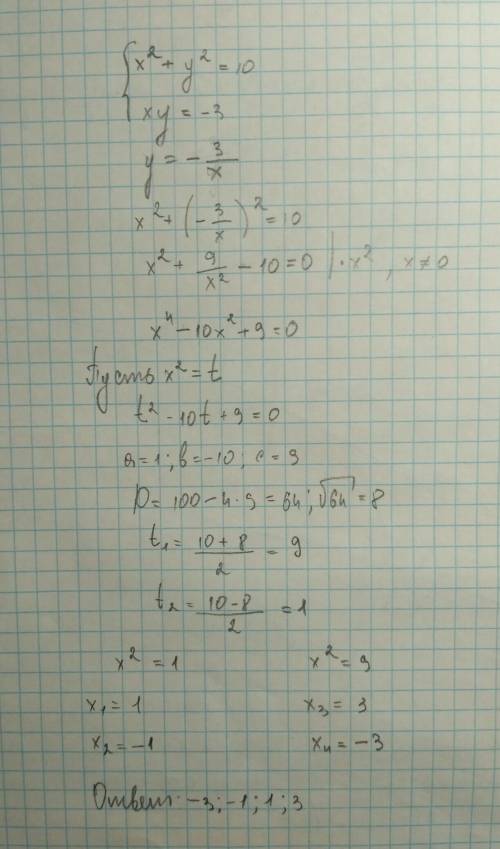 { x² + y² = 10
xy = -3
y = - 3/x
x² + (- 3/x)² = 10
x² + 9/x² - 10 = 0 | · x² , x ≠ 0
x⁴ - 10x² + 9 = 0
Пусть x² = t
t² - 10t + 9 = 0
a = 1 ; b = -10 ; c = 9
D = 100 - 4 · 9 = 64 ; √64 = 8
t₁ = (10 + 8)/2 = 9
t₂ = (10 - 8)/2 = 1
x² = 1 x² = 9
x₁ = 1 x₃ = 3
x₂ = -1 x₄ = -3
Ответ: -3 ; -1 ; 1 ; 3